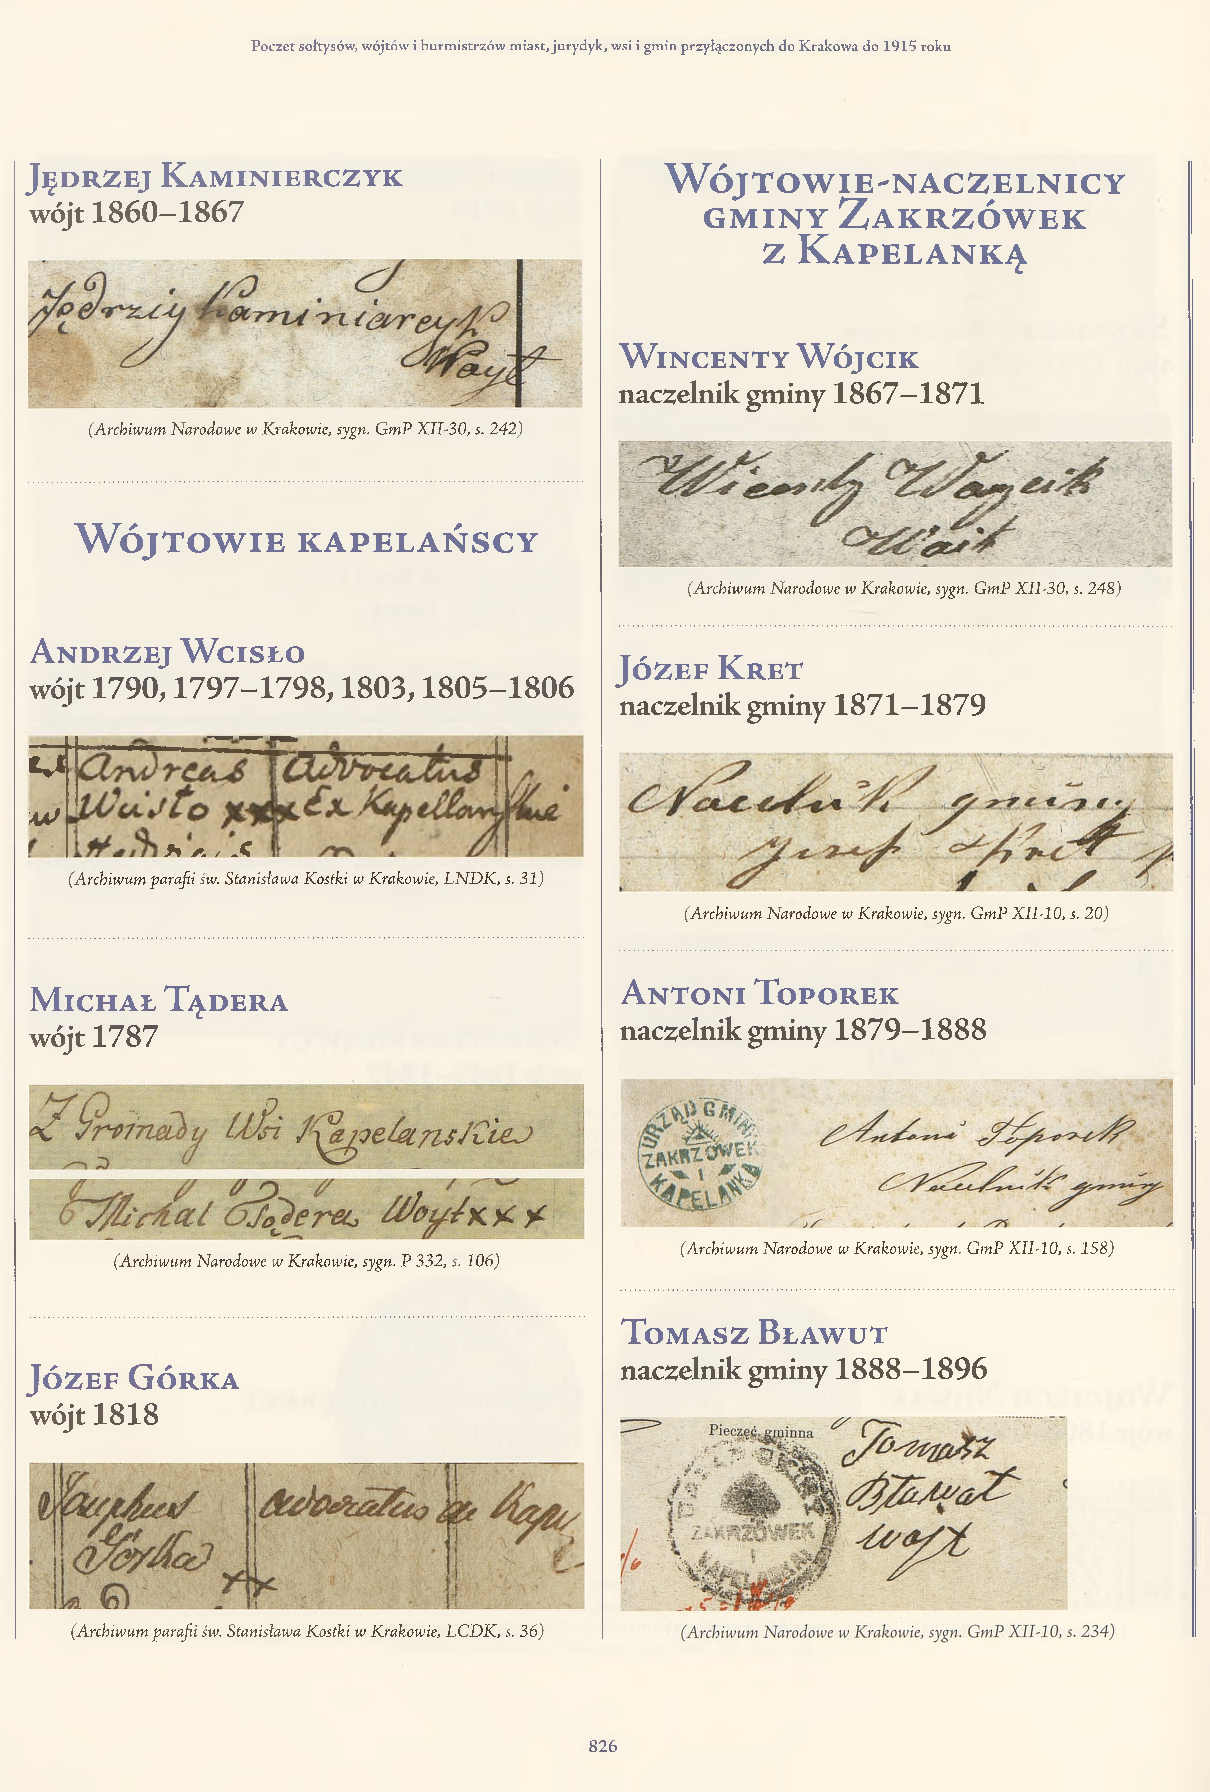 Poczet sołtysów, wójtów i burmistrzów miast, jurydyk, wsi i gmin przyłączonych do Krakowa do 1915 roku
Jędrzej Kaminierczyk
wójt 1860–1867
Jędrziy Kaminiarcyk
Woyt
(Archiwum Narodowe w Krakowie, sygn. GmP XII-30, s. 242)
Wójtowie kapelańscy
Andrzej Wcisło
wójt 1790, 1797–1798, 1803, 1805–1806
Andreas Advocatus
Wcisło xxx Ex Kapellanskie
(Archiwum parafii św. Stanisława Kostki w Krakowie, LNDK, s. 31)
Michał Tądera
wójt 1787
Z Gromady Wsi Kapelanskiej
Michał Tądera Woyt x x x
(Archiwum Narodowe w Krakowie, sygn. P 332, s. 106)
Józef Górka
wójt 1818
Josephus advocatus de Kape
Gorka
xx
(Archiwum parafii św. Stanisława Kostki w Krakowie, LCDK, s. 36)
Wójtowie-naczelnicy
gminy Zakrzówek
z Kapelanką
Wincenty Wójcik
naczelnik gminy 1867–1871
Wicenty Woycik
Woit
(Archiwum Narodowe w Krakowie, sygn. GmP XII-30, s. 248)
Józef Kret
naczelnik gminy 1871–1879
Nacelnik gminy
Josef Kret
(Archiwum Narodowe w Krakowie, sygn. GmP XII-10, s. 20)
Antoni Toporek
naczelnik gminy 1879–1888
URZĄD GMINY
ZAKRZÓWEK
I
KAPELANKA
Antoni Toporek
Nacelnik gminy
(Archiwum Narodowe w Krakowie, sygn. GmP XII-10, s. 158)
Tomasz Bławut
naczelnik gminy 1888–1896
Pieczęć gminna
ZAKRZÓWEK
I
Tomasz
Bławat
wójt
(Archiwum Narodowe w Krakowie, sygn. GmP XII-10, s. 234)
826